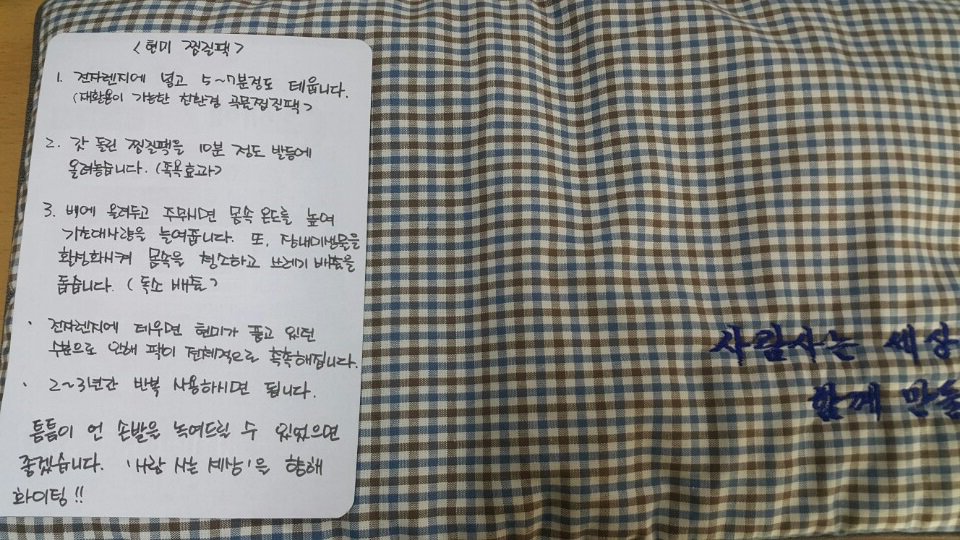 <현미 찜질팩>
1. 전자렌지에 넣고 5~7분정도 데웁니다.
(재활용이 가능한 친환경 곡물찜질팩)
2. 갓 돌린 찜질팩을 10분 정도 발등에
올려놓습니다. (족욕효과)
3. 배에 올려두고 주무시면 몸속 온도를 높여
기초대사량을 늘여줍니다. 또, 장내미생물을
활성화시켜 몸속을 청소하고 쓰레기 배출을
돕습니다. (독소 배출)
· 전자렌지에 데우면 현미가 품고 있던
수분으로 인해 팩이 전체적으로 촉촉해집니다.
· 2~3년간 반복 사용하시면 됩니다.
틈틈이 언 손발을 녹여드릴 수 있었으면
좋겠습니다. '사람 사는 세상'을 향해
화이팅!!
사람사는 세상
함께 만들